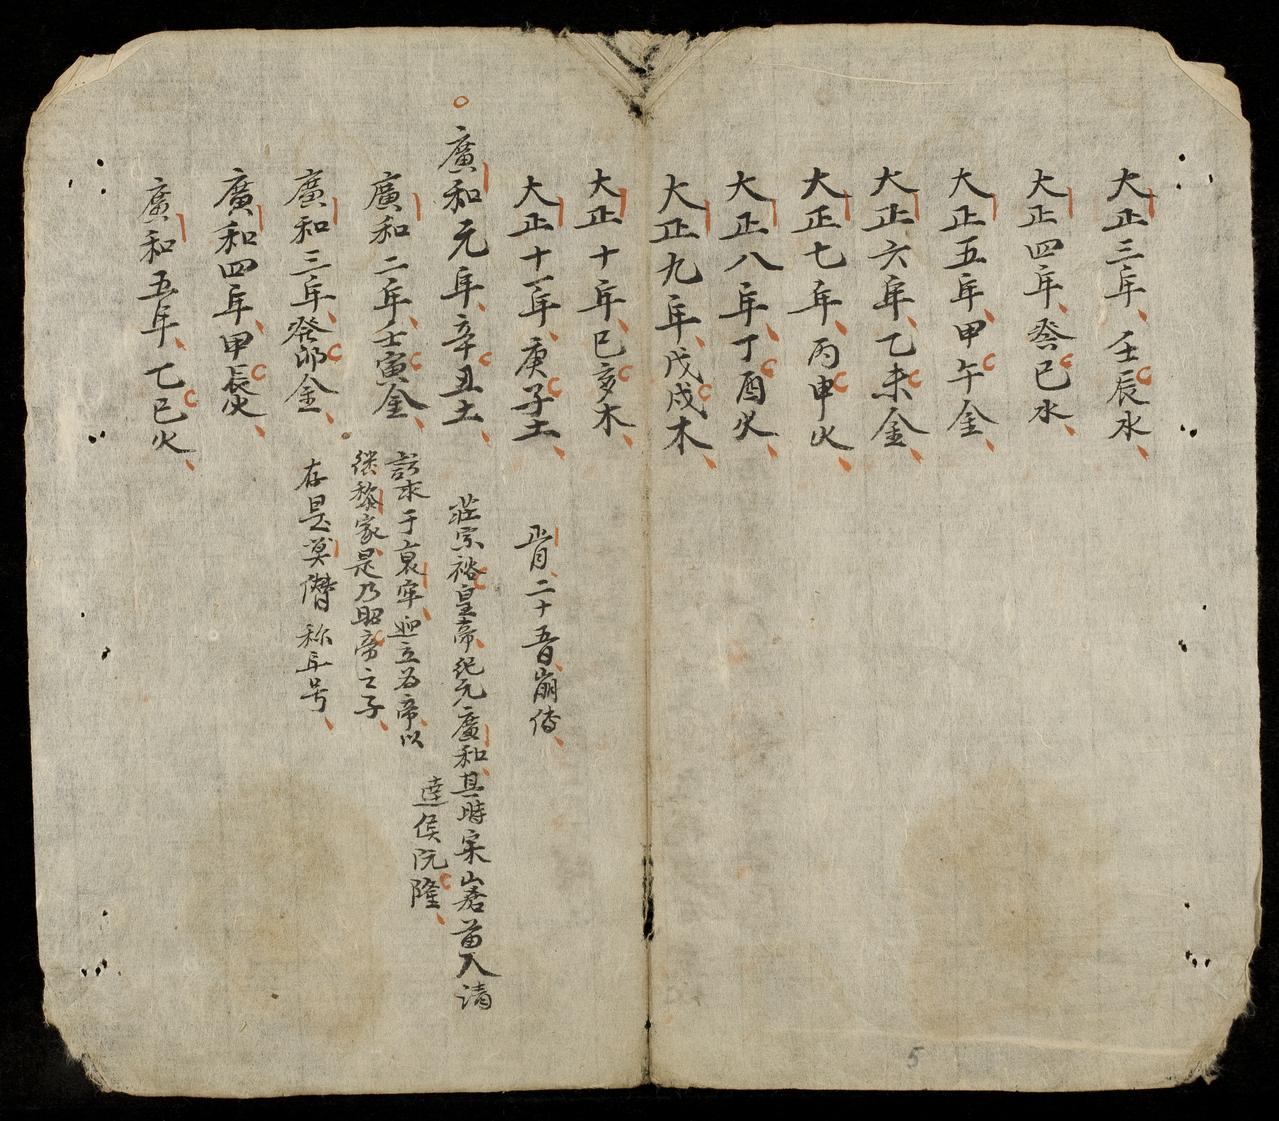 大正三年壬辰水
大正四年癸巳水
大正五年甲午金
大正六年乙未金
大正七年丙申火
大正八年丁酉火
大正九年戊戌木
大正十年己亥木
大正十一年庚子土
正月二十五日崩傳
廣和元年辛丑土
莊宗裕皇帝紀元廣和其時宋山嵩苗入請
達侯阮隆
廣和二年壬寅金
訪求于哀牢迎立為帝以
継黎家是乃昭帝之子
廣和三年癸卯金
存是莫僭称年号
廣和四年甲辰火
廣和五年乙巳火
5